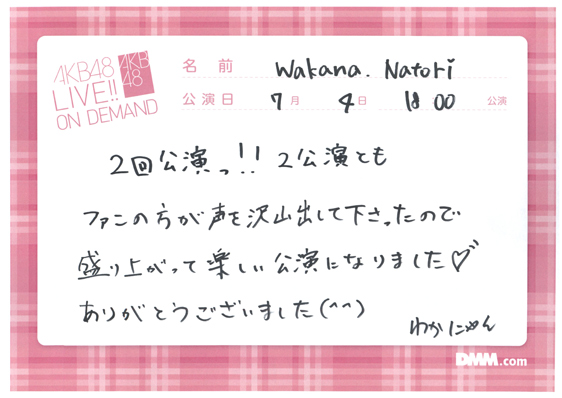 AKB48
LIVE!!
ON DEMAND
AKB
48
名前 Wakana. Natori
公演日 7月 4日 18:00 公演
2回公演っ!! 2公演とも
ファンの方が声を沢山出して下さったので
盛り上がって楽しい公演になりました♡
ありがとうございました(^^)
わかにゃん
DMM.com